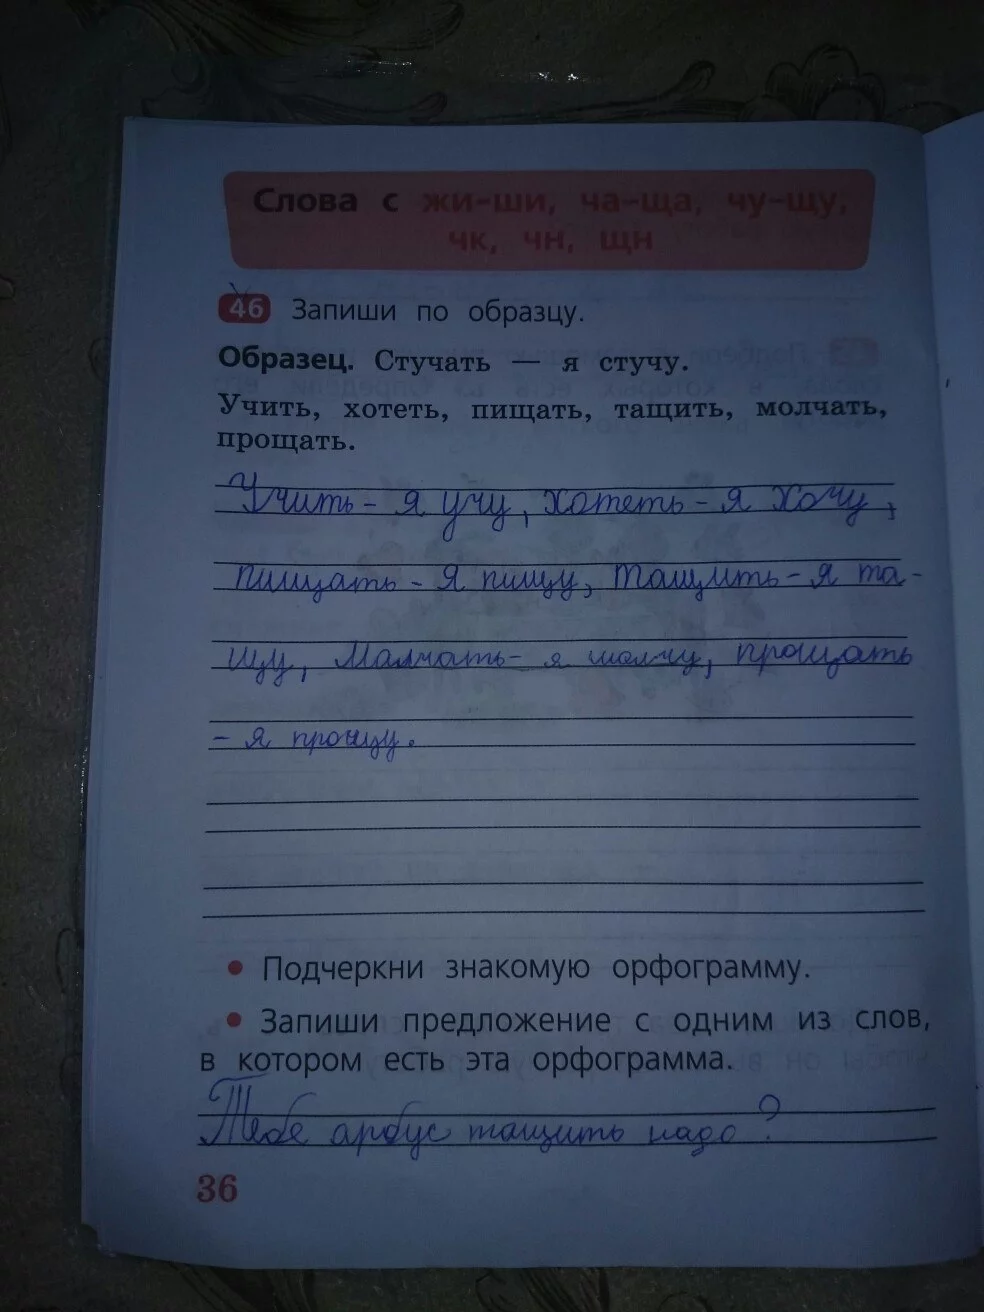 Слова с жи-ши, ча-ща, чу-щу,
чк, чн, щн
46 Запиши по образцу.
Образец. Стучать — я стучу.
Учить, хотеть, пищать, тащить, молчать,
прощать.
Учить - я учу, хотеть - я хочу,
пищать - я пищу, тащить - я та-
щу, молчать - я молчу, прощать
- я прощу.
• Подчеркни знакомую орфограмму.
• Запиши предложение с одним из слов,
в котором есть эта орфограмма.
Тебе арбус тащить надо?
36